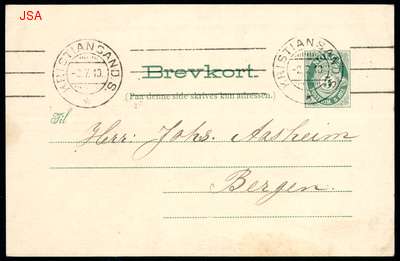 JSA
KRISTIANSAND.S
-2.V.10.
KRISTIANSAND.S
Brevkort.
(Paa denne side skrives kun adressen.)
Til
Herr Johs. Aasheim
Bergen.